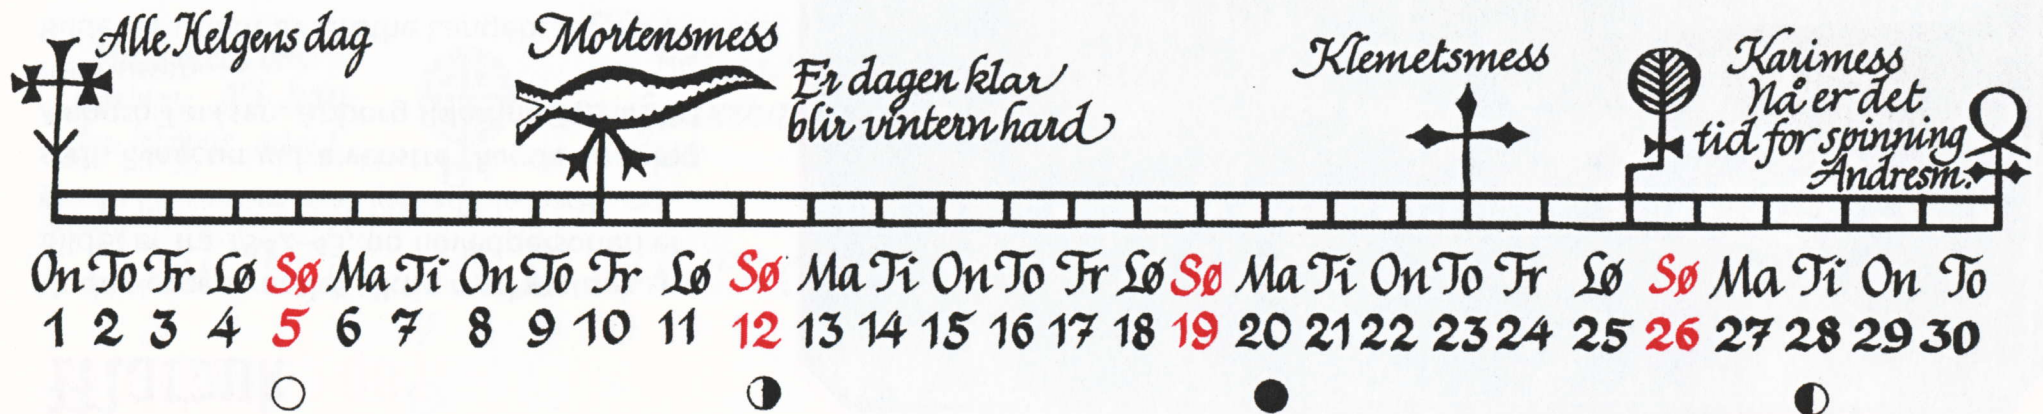 Alle Helgens dag
Mortensmess
Er dagen klar
blir vintern hard
Klemetsmess
Karimess
Nå er det
tid for spinning
Andresm.
On To Fr Lø Sø Ma Ti On To Fr Lø Sø Ma Ti On To Fr Lø Sø Ma Ti On To Fr Lø Sø Ma Ti On To
1 2 3 4 5 6 7 8 9 10 11 12 13 14 15 16 17 18 19 20 21 22 23 24 25 26 27 28 29 30